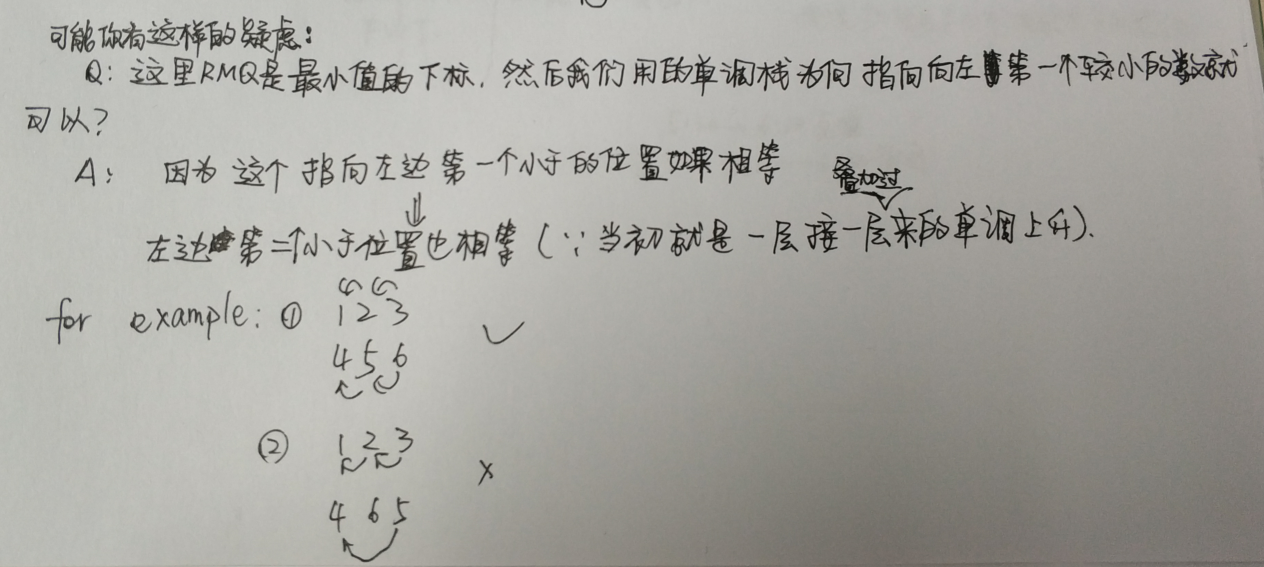 可能你有这样的疑虑：
Q：这里RMQ是最小值的下标，然后我们用的单调栈为何指向向左第一个较小的数就
可以？
A：因为这个指向左边第一个小于的位置如果相等
叠加过
⇓
左边第二个小于位置也相等（∵当初就是一层接一层来的单调上升）.
for example: ① 1 2 3 ✓
4 5 6
② 1 2 3 ×
4 6 5